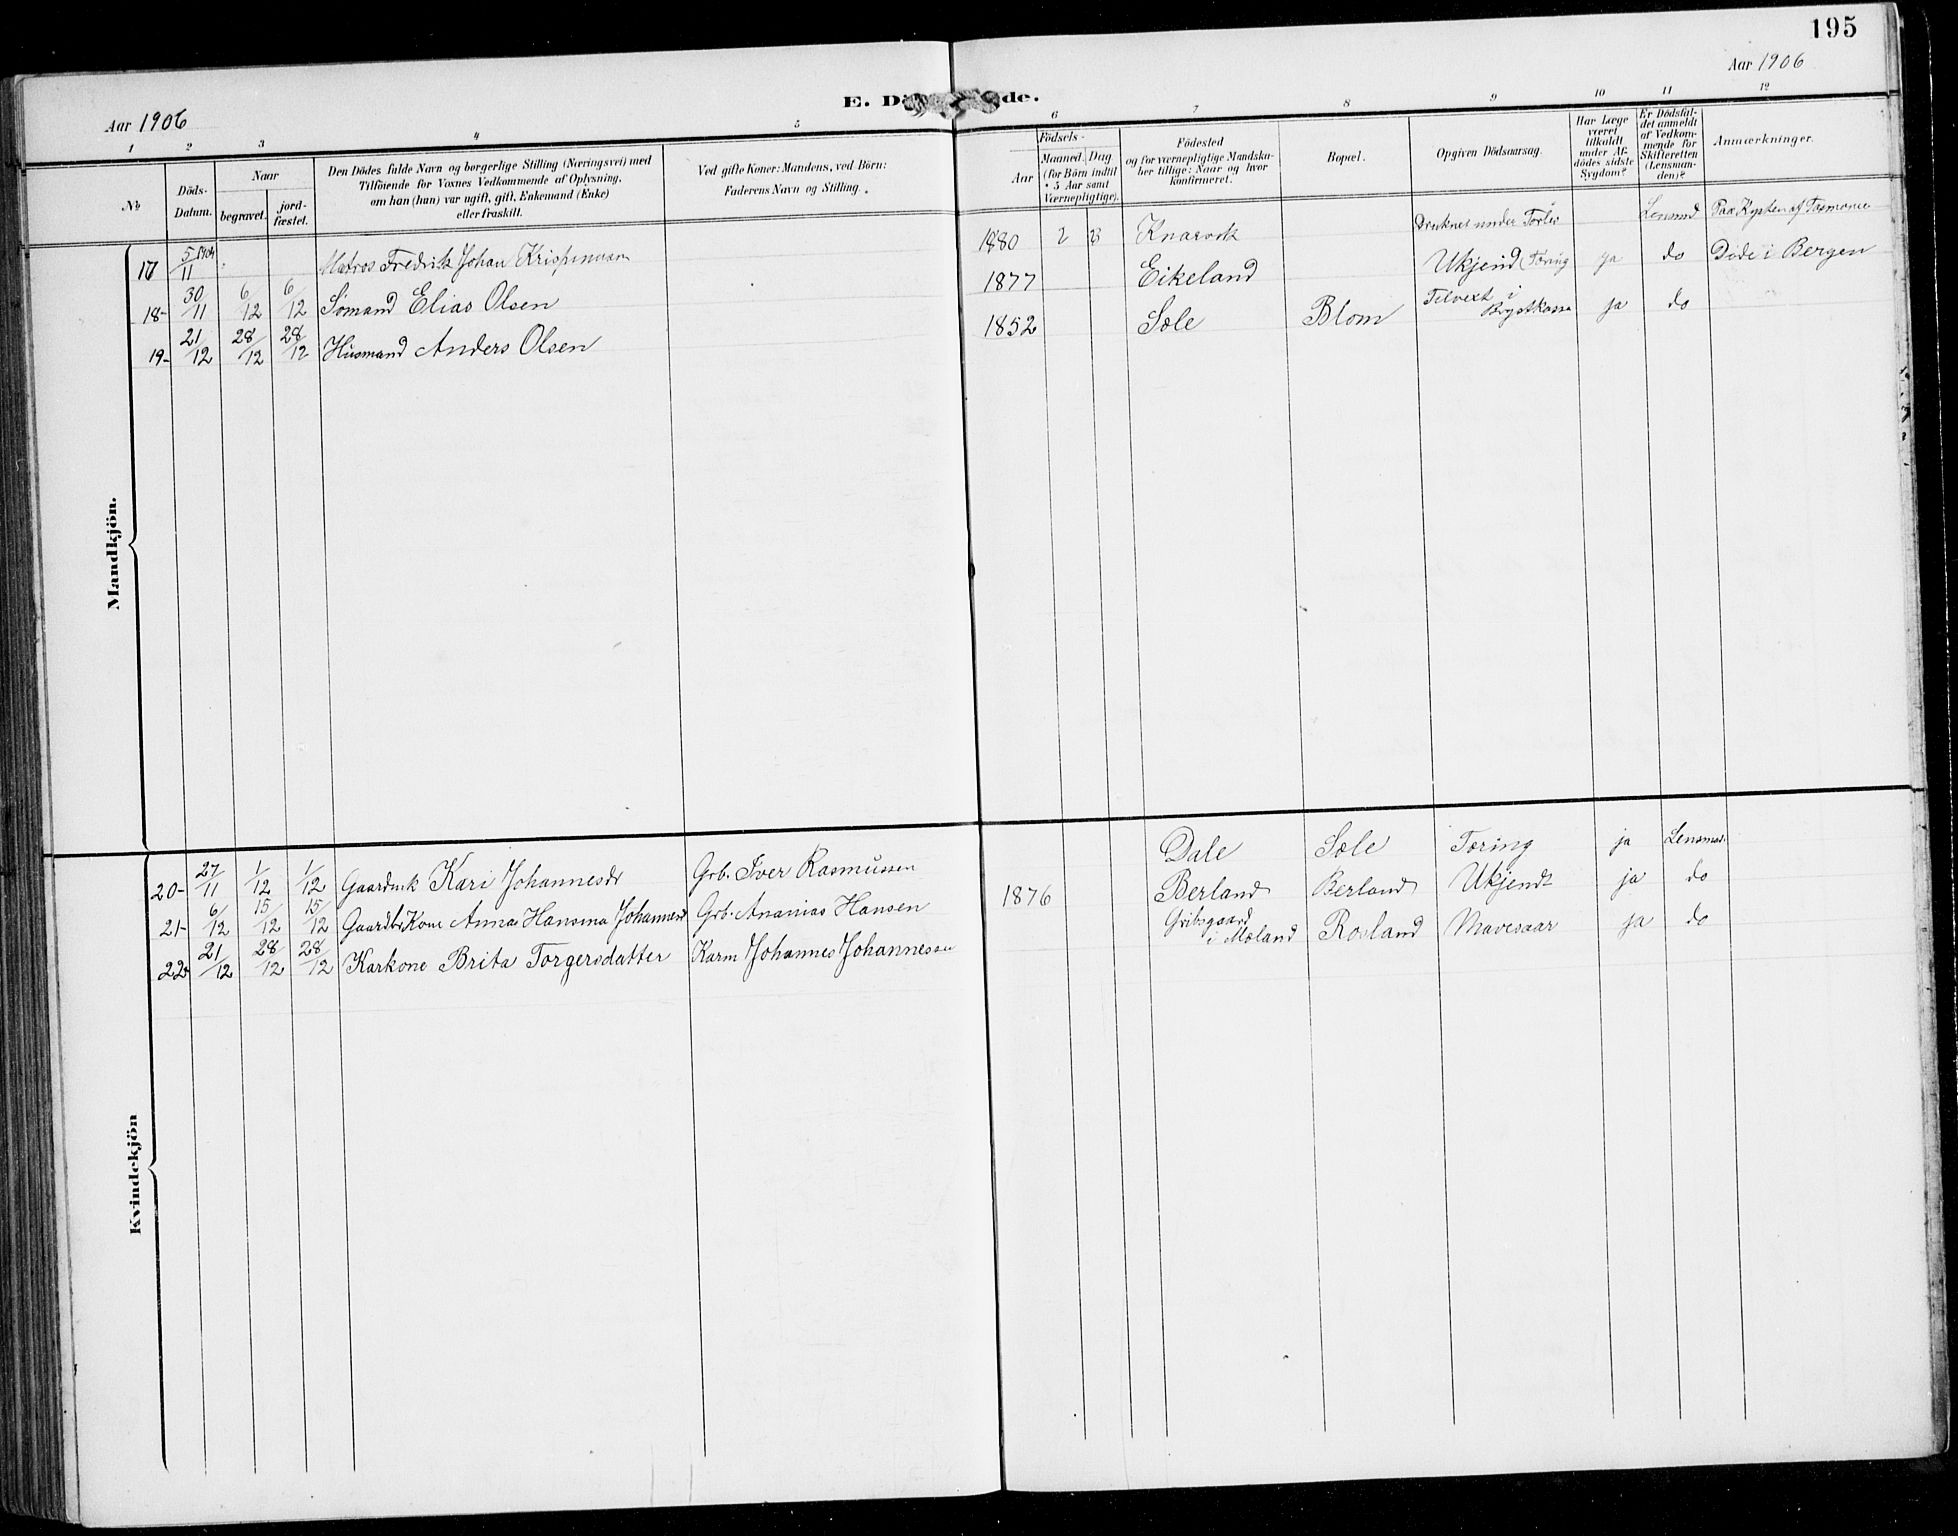 195
Aar 1906
Aar 1906
E. Dö de.
1 2 3 4 5 6 7 8 9 10 11 12
№
Döds-
Datum.
Naar
begravet.
jord-
fæstet.
Den Dödes fulde Navn og borgerlige Stilling (Næringsvei) med
Tilföiende for Voxnes Vedkommende af Oplysning,
om han (hun) var ugift, gift, Enkemand (Enke)
eller fraskilt.
Ved gifte Koner: Mandens, ved Börn:
Faderens Navn og Stilling.
Födsels-
Aar
Maaned. Dag
(for Börn indtil
5 Aar samt
Værnepligtige).
Födested
og for værnepligtige Mandska-
ber tillige: Naar og hvor
konfirmeret.
Bopæl.
Opgiven Dödsaarsag.
Har Læge
været
tilkaldt
under Af-
dödes sidste
Sygdom?
Er Dödsfal-
det anmeldt
af Vedkom-
mende for
Skifteretten
(Lensman-
den)?
Anmærkninger.
Mandkjön.
17 5/11 1904 Matros Fredrik Johan 1880 2 Knarvik Druknet under Lensmd Kysten af Tasmania
18- 30/11 6/12 6/12 Sømand Elias Olsen 1877 Eikeland Ukjend (Tæring ja do Døde i Bergen
19- 21/12 28/12 28/12 Husmand Anders Olsen 1852 Sæle Blom Tilvext i Brystkasse ja do
Kvindekjön
20- 27/11 1/12 1/12 Kari Johannesdr Grb. Iver Rasmussen Dale Sæle Tæring ja Lensmd.
21- 6/12 15/12 15/12 Gaardbr Kone Anna Hansina Johannesd Grb. Ananias Hansen 1876 Berland Berland Ukjendt ja do
22- 21/12 28/12 28/12 Karkone Brita Torgersdatter Karm Johannes Johannessen Gribsgaard i Mæland Rosland Mavesaar ja do